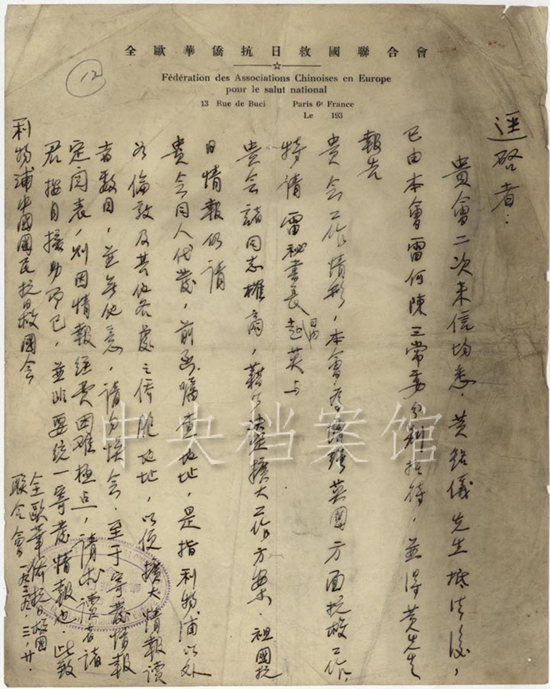 全歐華僑抗日救國聯合會
Fédération des Associations Chinoises en Europe
pour le salut national
13 Rue de Buci Paris 6e France
Le 193
12
逕啓者：
貴會二次来信均悉，黃銘儀先生抵法後，
已由本會雷何陳三常委分别招待，並得黃先生
報告
貴會工作情形，本會為增强英國方面抗救工作，
特請雷秘書長日内赴英与
貴會諸同志權商，藉以决定擴大工作方案。祖國抗
日情報仍請
貴會同人代發，前函囑查地址，是指利物浦以外
如倫敦及其他各處之僑胞地址，以便擴大情報讀
者数目，並無他意，請勿悮會。至于寄發情報
定閱表，则因情報經費困难極点，請求讀者諸
君按月援助而已，並非要统一寄發情報也。此致
利物浦中國國民抗日救國會
全歐華僑抗日救國
聯合會 一九三九.三.廿.
中央档案馆